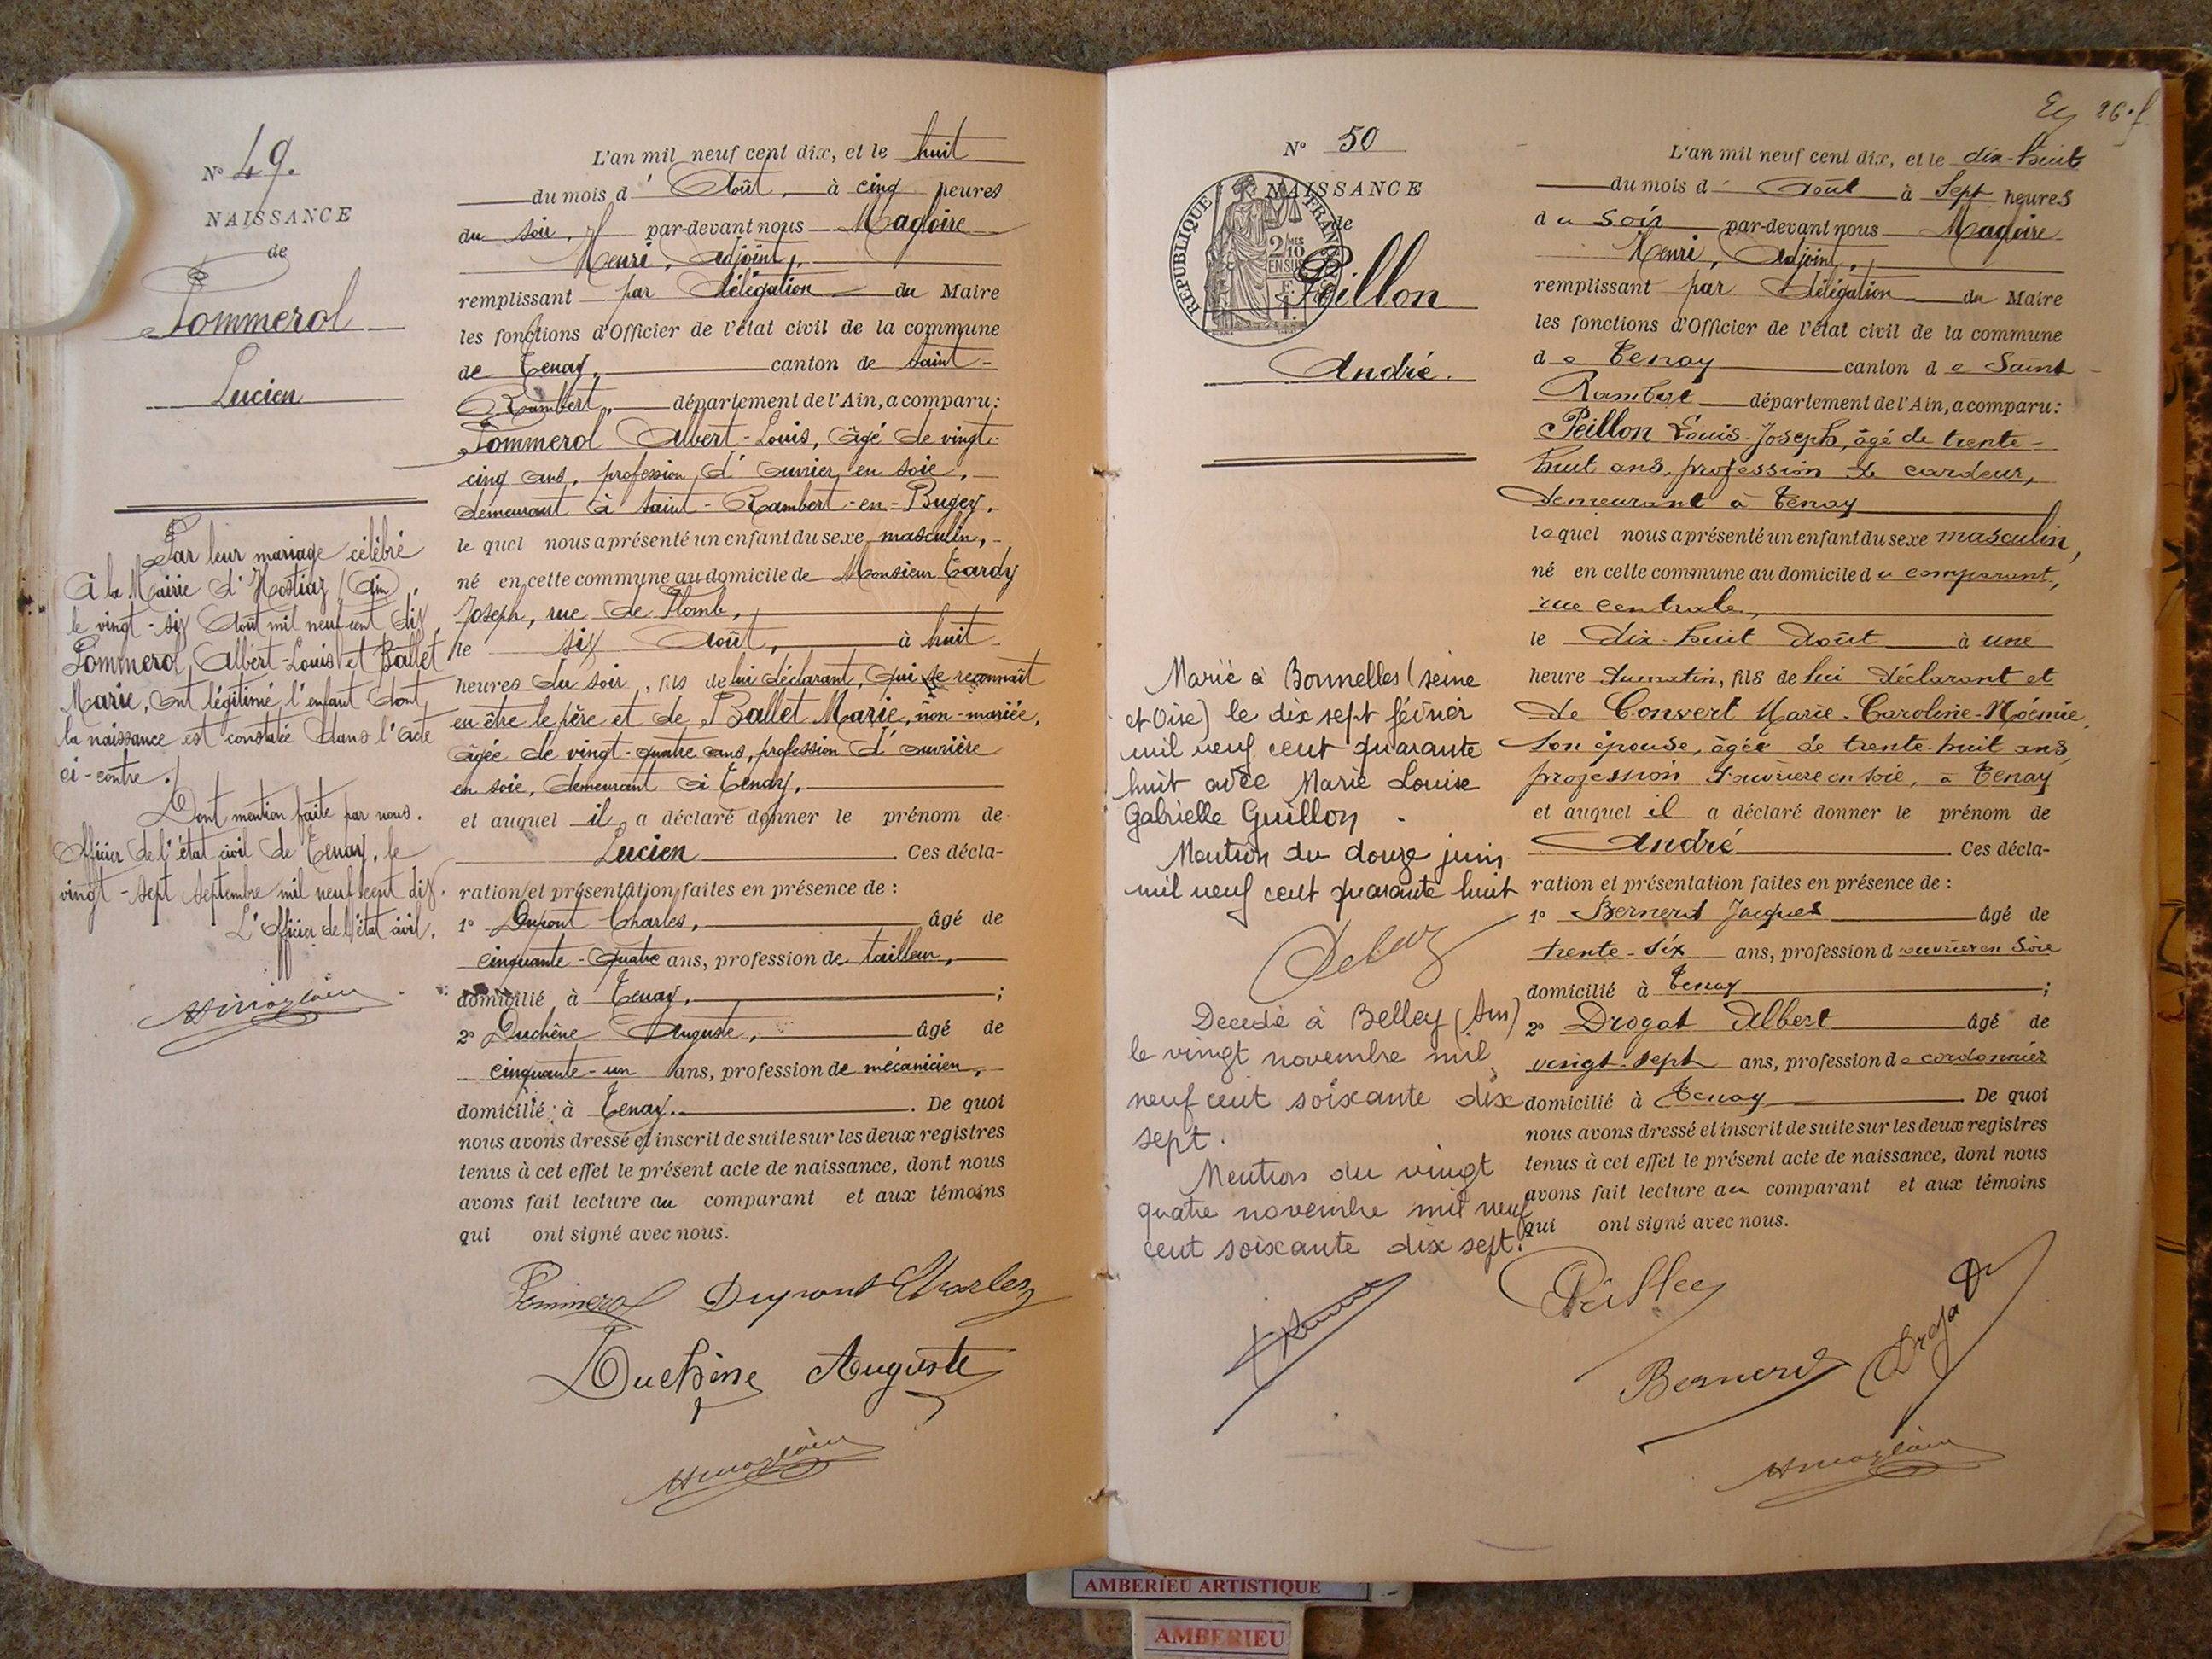 N° 49.
NAISSANCE
de
Pommerol
Lucien
Par leur mariage célébré
à la Mairie d'Hostiaz (Ain),
le vingt-six Août mil neuf cent dix,
Pommerol Albert-Louis et Ballet
Marie, ont légitimé l'enfant dont
la naissance est constatée dans l'acte
ci-contre.
Dont mention faite par nous.
Officier de l'état civil de Tenay, le
vingt-sept Septembre mil neuf cent dix.
L'Officier de l'état civil,
L'an mil neuf cent dix, et le huit
du mois d' Août, à cinq heures
du soir, par-devant nous Magloire
Henri, Adjoint,
remplissant par délégation du Maire
les fonctions d'Officier de l'état civil de la commune
de Tenay, canton de Saint-
Rambert, département de l'Ain, a comparu:
Pommerol Albert-Louis, âgé de vingt-
cinq ans, profession d'ouvrier en soie,
demeurant à Saint-Rambert-en-Bugey,
lequel nous a présenté un enfant du sexe masculin,
né en cette commune au domicile de Monsieur Tardy
Joseph, rue de Plomb,
le six Août, à huit
heures du soir, fils de lui déclarant, qui se reconnaît
en être le père et de Ballet Marie, non-mariée,
âgée de vingt-quatre ans, profession d'ouvrière
en soie, demeurant à Tenay,
et auquel il a déclaré donner le prénom de
Lucien. Ces décla-
ration et présentation faites en présence de :
1° Dupont Charles, âgé de
cinquante-quatre ans, profession de tailleur,
domicilié à Tenay, ;
2° Duchêne Auguste, âgé de
cinquante-un ans, profession de mécanicien,
domicilié à Tenay. De quoi
nous avons dressé et inscrit de suite sur les deux registres
tenus à cet effet le présent acte de naissance, dont nous
avons fait lecture au comparant et aux témoins
qui ont signé avec nous.
Pommerol Dupont Charles
Duchêne Auguste
Hmagloire
Ey 26.f
N° 50
NAISSANCE
de
RÉPUBLIQUE FRANÇAISE
2/10 MES
EN SUS
Peillon
André.
Marié à Bonnelles (Seine
et Oise) le dix sept février
mil neuf cent quarante
huit avec Marie Louise
Gabrielle Guillon.
Mention du douze juin
mil neuf cent quarante huit
Décédé à Belley (Ain)
le vingt novembre mil
neuf cent soixante dix
sept.
Mention du vingt
quatre novembre mil neuf
cent soixante dix sept.
L'an mil neuf cent dix, et le dix-huit
du mois d' Août à Sept heures
du soir par-devant nous Magloire
Henri, Adjoint,
remplissant par délégation du Maire
les fonctions d'Officier de l'état civil de la commune
de Tenay canton de Saint-
Rambert département de l'Ain, a comparu:
Peillon Louis-Joseph, âgé de trente-
huit ans, profession de cardeur,
demeurant à Tenay
lequel nous a présenté un enfant du sexe masculin,
né en cette commune au domicile du comparant,
rue centrale,
le dix-huit Août à une
heure du matin, fils de lui déclarant et
de Convert Marie-Caroline-Noémie,
son épouse, âgée de trente-huit ans,
profession d'ouvrière en soie, à Tenay
et auquel il a déclaré donner le prénom de
André. Ces décla-
ration et présentation faites en présence de :
1° Bernerd Jacques âgé de
trente-six ans, profession d'ouvrier en Soie
domicilié à Tenay ;
2° Drogat Albert âgé de
vingt-sept ans, profession de cordonnier
domicilié à Tenay. De quoi
nous avons dressé et inscrit de suite sur les deux registres
tenus à cet effet le présent acte de naissance, dont nous
avons fait lecture au comparant et aux témoins
qui ont signé avec nous.
Peillon
Bernerd Drogat
Hmagloire
AMBERIEU ARTISTIQUE
AMBERIEU